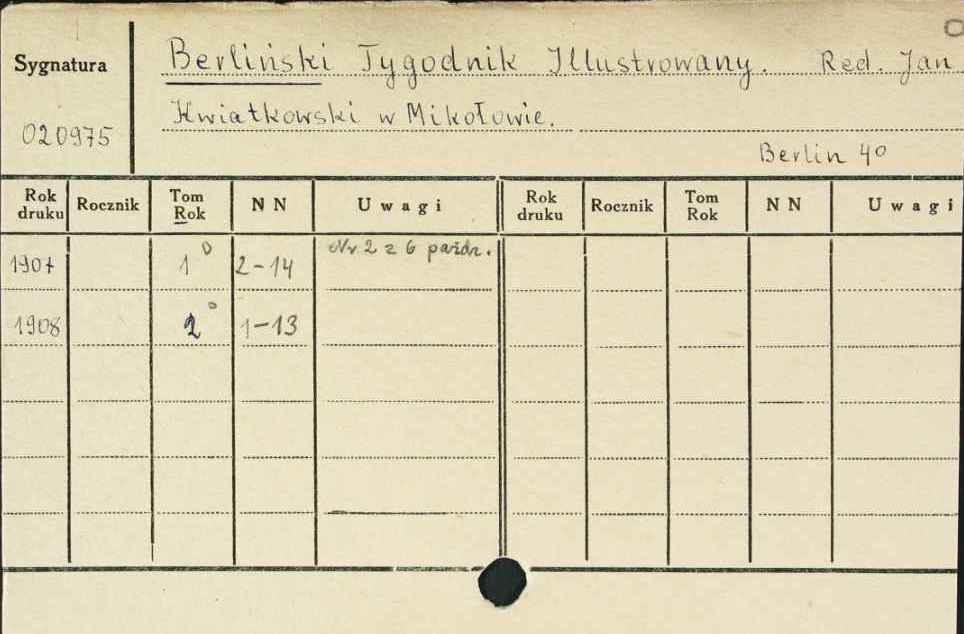 Sygnatura
Berliński Tygodnik Illustrowany. Red. Jan
Kwiatkowski w Mikołowie.
020975
Berlin 4°
Rok druku Rocznik Tom Rok NN Uwagi Rok druku Rocznik Tom Rok NN Uwagi
1907 1° 2-14 Nr 2 z 6 paźdr.
1908 2° 1-13